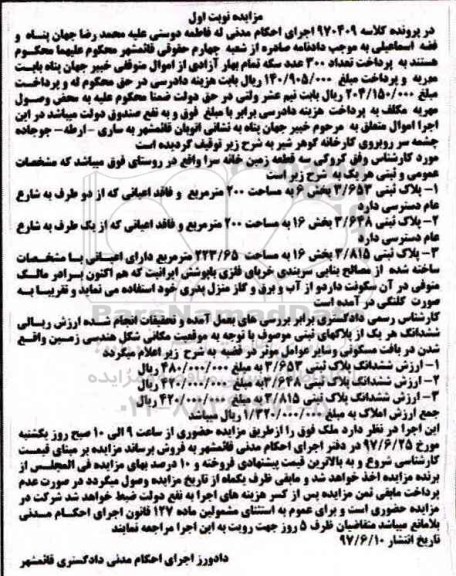 مزایده نوبت اول
در پرونده کلاسه ۹۷۰۴۰۹ اجرای احکام مدنی له فاطمه دوستی علیه محمد رضا جهان پناه و
فضه اسماعیلی به موجب دادنامه صادره از شعبه چهارم حقوقی قائمشهر محکوم علیهما محکوم
هستند به پرداخت تعداد ۳۰۰ عدد سکه تمام بهار آزادی از اموال متوفی خیبر جهان پناه بابت
مهریه و پرداخت مبلغ ۱۴۰/۹۰۵/۰۰۰ ریال بابت هزینه دادرسی در حق محکوم له و پرداخت
مبلغ ۲۰۴/۱۵۰/۰۰۰ ریال بابت نیم عشر ولتی در حق دولت ضمنا محکوم علیه به محض وصول
مهریه مکلف به پرداخت هزینه دادرسی برابر با مبلغ فوق و به نفع صندوق دولت میباشد در این
اجرا اموال متعلق به مرحوم خیبر جهان پناه به نشانی اتوبان قائمشهر به ساری - ارطه- جوجاده
چشمه سر روبروی کارخانه گوهر شیر به شرح زیر توقیف گردیده است
مورد کارشناس وفق کروکی سه قطعه زمین خانه سرا واقع در روستای فوق میباشد که مشخصات
عمومی و ثبتی هر یک به شرح زیر است
۱- پلاک ثبتی ۳/۶۵۳ بخش ۶ به مساحت ۲۰۰ مترمربع و فاقد اعیانی که از دو طرف به شارع
عام دسترسی دارد
۲- پلاک ثبتی ۳/۶۴۸ بخش ۱۶ به مساحت ۲۰۰ مترمربع و فاقد اعیانی که از یک طرف به شارع
عام دسترسی دارد
۳- پلاک ثبتی ۳/۸۱۵ بخش ۱۶ به مساحت ۲۲۳/۶۵ مترمربع دارای اعیانی با مشخصات
ساخته شده از مصالح بنایی سربندی خرپای فلزی باپوشش ایرانیت که هم اکنون برادر مالک
متوفی در آن سکونت دارد از آب و برق و گاز منزل پدری خود استفاده می نماید و تقریبا به
صورت کلنگی در آمده است
کارشناس رسمی دادگستری برابر بررسی های بعمل آمده و تحقیقات انجام شده ارزش ریالی
ششدانگ هر یک از پلاکهای ثبتی موصوف با توجه به موقعیت مکانی شکل هندسی زمین واقع
شدن در بافت مسکونی وسایر عوامل موثر در قضیه به شرح زیر اعلام میگردد
۱- ارزش ششدانگ پلاک ثبتی ۳/۶۵۳ به مبلغ ۴۸۰/۰۰۰/۰۰۰ ریال
۲- ارزش ششدانگ پلاک ثبتی ۳/۶۴۸ به مبلغ ۴۲۰/۰۰۰/۰۰۰ ریال
۳- ارزش ششدانگ پلاک ثبتی ۳/۸۱۵ به مبلغ ۴۲۰/۰۰۰/۰۰۰ ریال
جمع ارزش املاک به مبلغ ۱/۳۲۰/۰۰۰/۰۰۰ ریال میباشد
این اجرا در نظر دارد ملک فوق را ازطریق مزایده حضوری از ساعت ۹ الی ۱۰ صبح روز یکشنبه
مورخ ۹۷/۶/۲۵ در دفتر اجرای احکام مدنی قائمشهر به فروش برساند مزایده بر مبنای قیمت
کارشناسی شروع و به بالاترین قیمت پیشنهادی فروخته و ۱۰ درصد بهای مزایده فی المجلس از
برنده مزایده اخذ خواهد شد و مابقی ظرف یکماه از تاریخ مزایده وصول میگردد در صورت عدم
پرداخت مابقی ثمن مزایده پس از کسر هزینه های اجرا به نفع دولت ضبط خواهد شد شرکت در
مزایده حضوری است و برای عموم به استثنای مشمولین ماده ۱۲۷ قانون اجرای احکام مدنی
بلامانع میباشد متقاضیان ظرف ۵ روز جهت رویت به این اجرا مراجعه نمایند
تاریخ انتشار ۹۷/۶/۱۰
دادورز اجرای احکام مدنی دادگستری قائمشهر